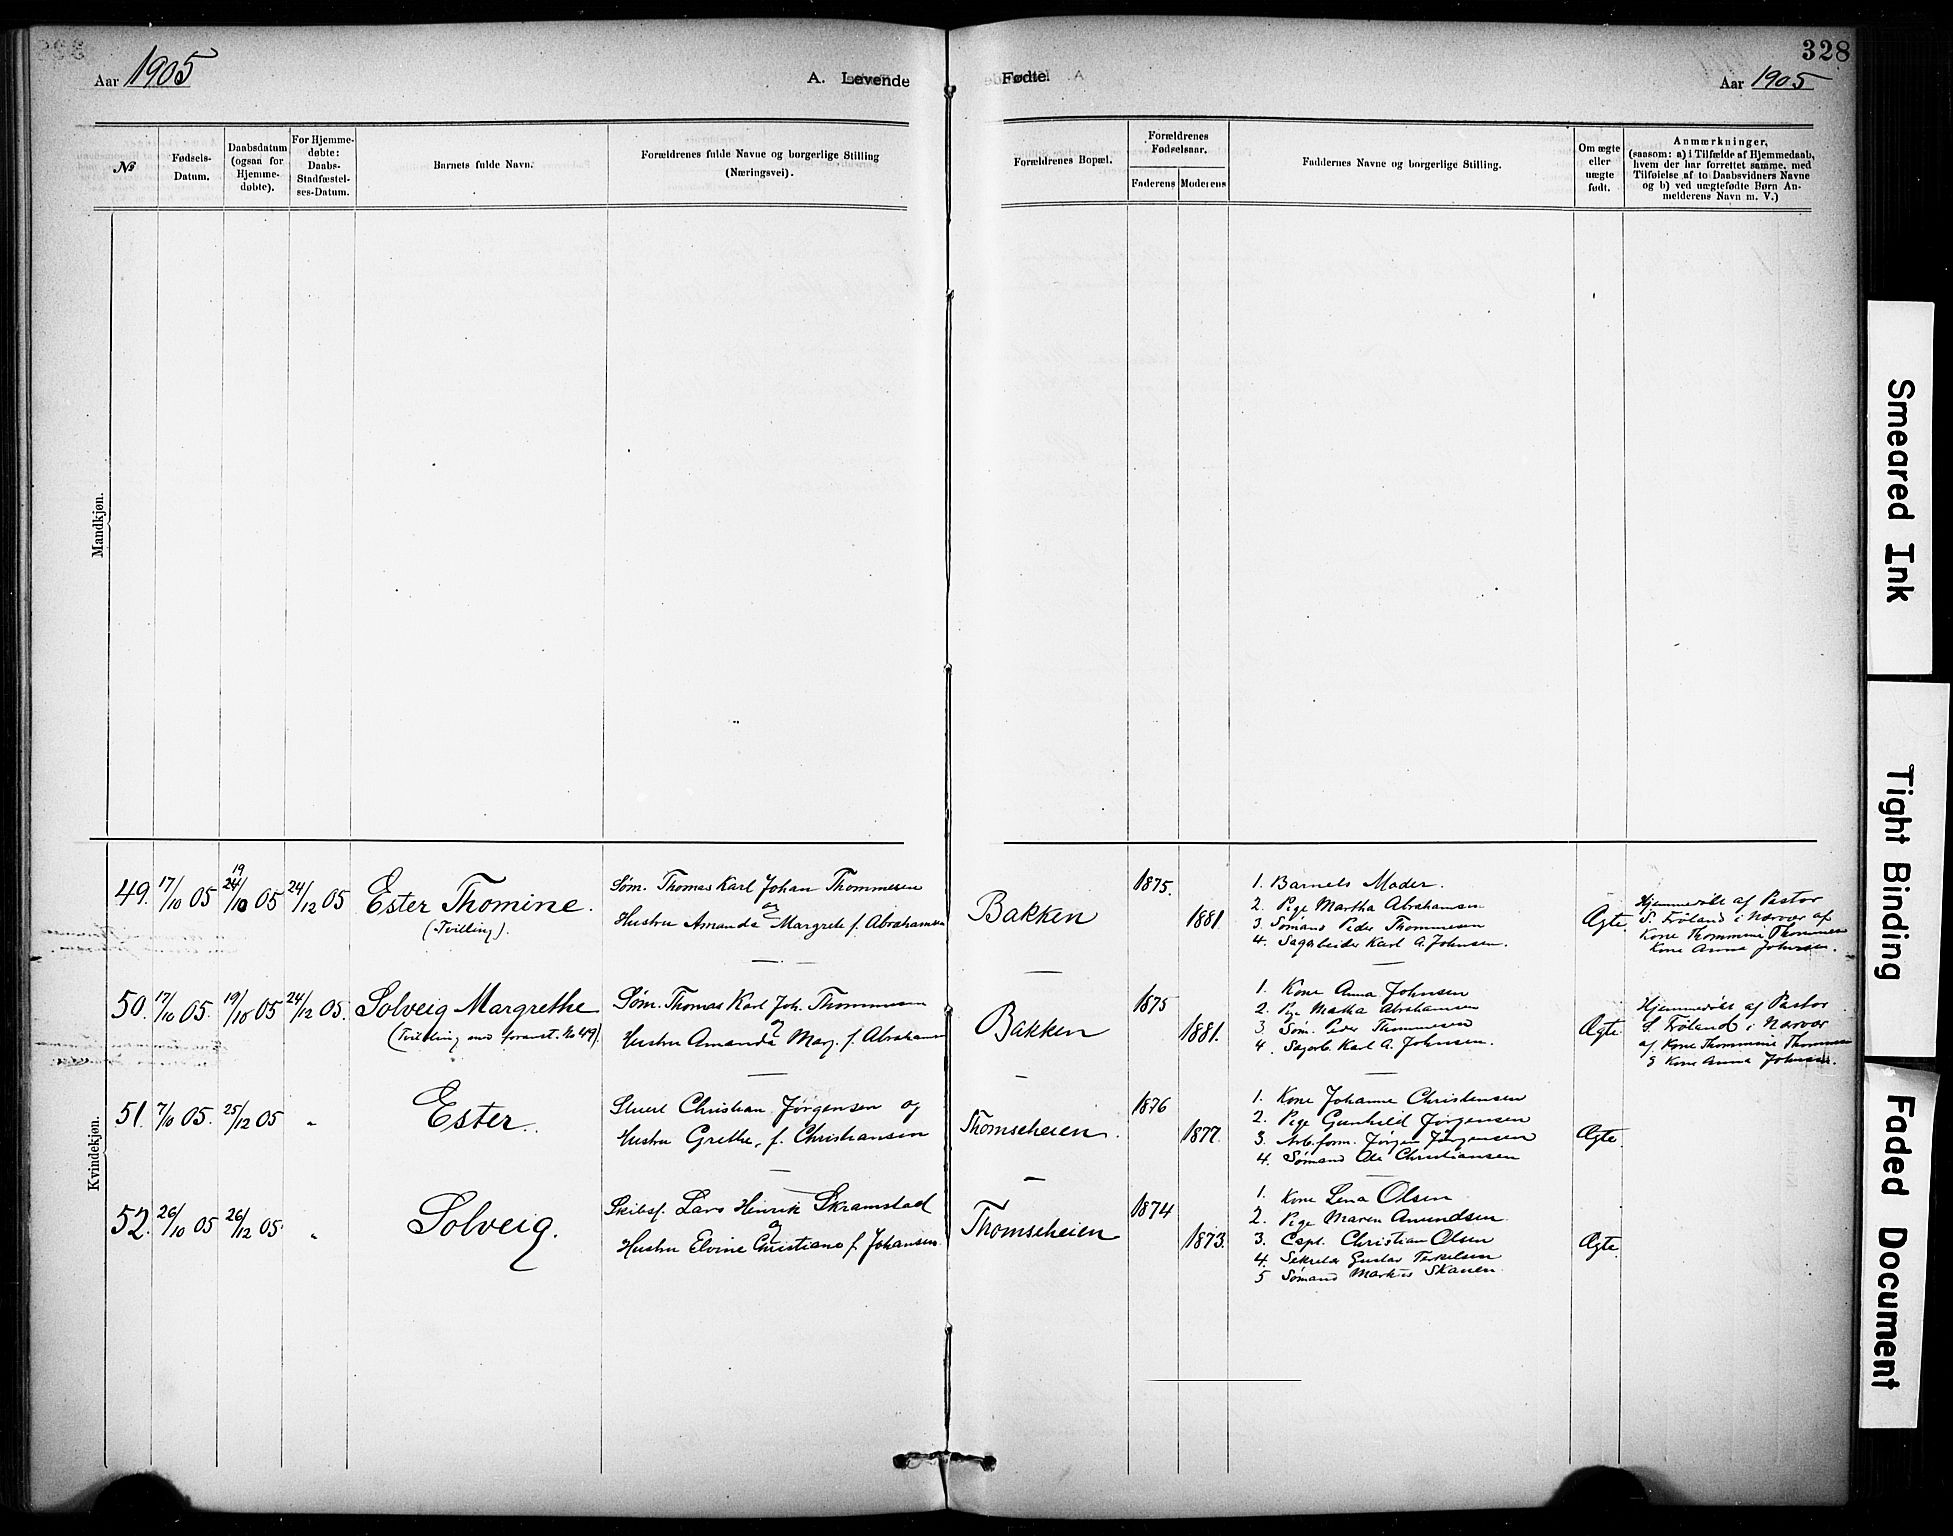 328
Aar 1905
A. Levende
Fødte.
Aar 1905
No
Fødsels-
Datum.
Daabsdatum
(ogsaa for
Hjemme-
døbte).
For Hjemme-
døbte:
Daabs-
Stadfæstel-
ses-Datum.
Barnets fulde Navn.
Forældrenes fulde Navne og borgerlige Stilling
(Næringsvei).
Forældrenes Bopæl.
Forældrenes
Fødselsaar.
Faderens
Moderens
Faddernes Navne og borgerlige Stilling.
Om ægte
eller
uægte
født.
Anmærkninger,
(saasom: a) i Tilfælde af Hjemmedaab,
hvem der har forrettet samme, med
Tilføielse af to Daabsvidners Navne
og b) ved uægtefødte Børn An-
melderens Navn m. V.)
Mandkjøn.
Kvindekjøn.
49. 17/10 05 19 24/10 05 24/12 05
Ester Thomine.
(Tvilling).
Søm. Thomas Karl Johan Thommesen
og
Hustru Amanda Margrete f. Abrahamsen
Bakken
1875.
1881
1. Barnets Moder.
2. Pige Martha Abrahamsen
3. Sømand Peder Thommesen
4. Sagarbeider Karl A. Johnsen.
Ægte
Hjemmedøbt af Pastor
S. Frøland i Nærvær af
Kone Thommine Thommesen
Kone Anna Johnsen.
50. 17/10 05. 19/10 05 24/12 05.
Solveig Margrethe
(Tvilling med foranst. No 49).
Søm. Thomas Karl Joh. Thommesen
og
Hustru Amanda Marg. f. Abrahamsen
Bakken
1875
1881.
1. Kone Anna Johnsen
2. Pige Martha Abrahamsen
3. Søm. Peder Thommesen
4. Sagarb. Karl A. Johnsen.
Ægte
Hjemmedøbt af Pastor
S. Frøland i Nærvær
af Kone Thommine Thommesen
& Kone Anna Johnsen.
51. 7/10 05. 25/12 05 "
Ester.
Stuert Christian Jørgensen og
Hustru Grethe, f. Christiansen
Thomseheien.
1876
1877.
1. Kone Johanne Christensen
2. Pige Gunhild Jørgensen
3. Arb.form. Jørgen Jørgensen
4. Sømand Ole Christiansen
Ægte
52. 26/10 05 26/12 05. "
Solveig.
Skibsf. Lars Henrik Skramstad
og
Hustru Elvine Christiane f. Johansen.
Thomseheien
1874
1873.
1. Kone Lena Olsen
2. Pige Maren Amundsen.
3. Capt. Christian Olsen
4. Sekretær Gustav Terkelsen
5 Sømand Markus Skauen.
Ægte
Smeared Ink
Tight Binding
Faded Document